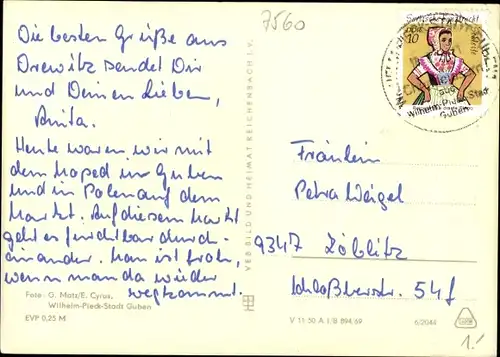 7560
Die besten Grüße aus
Drewitz sendet Dir
und Deinen Lieben,
Anita.
Heute waren wir mit
dem Moped in Guben
und in Polen auf dem
Markt. Auf diesem Markt
geht es furchtbar durch-
einander. Man ist froh,
wenn man da wieder
wegkommt.
Foto: G. Matz/E. Cyrus,
Wilhelm-Pieck-Stadt Guben
EVP 0,25 M
VEB BILD UND HEIMAT REICHENBACH I. V.
DDR
10
aus
Wilhelm-Pieck-Stadt
Guben
Fräulein
Petra Weigel
9347 Zöblitz
Schloßbergstr. 54f
V 11 50 A 1/B 894/69
6/2044
1.-